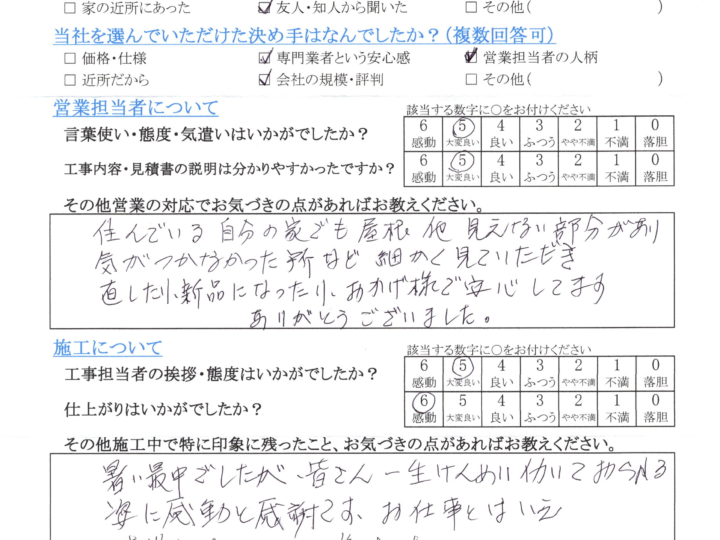 □ 家の近所にあった ☑ 友人・知人から聞いた □ その他( )
当社を選んでいただけた決め手はなんでしたか？(複数回答可)
□ 価格・仕様 ☑ 専門業者という安心感 ☑ 営業担当者の人柄
□ 近所だから ☑ 会社の規模・評判 □ その他( )
営業担当者について 該当する数字に○をお付けください
言葉使い・態度・気遣いはいかがでしたか？ 6 5 4 3 2 1 0
感動 大変良い 良い ふつう やや不満 不満 落胆
工事内容・見積書の説明は分かりやすかったですか？ 6 5 4 3 2 1 0
感動 大変良い 良い ふつう やや不満 不満 落胆
その他営業の対応でお気づきの点があればお教えください。
住んでいる 自分の家でも 屋根 他 見えない 部分があり
気がつかなかった 所など 細かく 見ていただき
直したり 新品になったり、おかげ様で安心してます
ありがとうございました。
施工について 該当する数字に○をお付けください
工事担当者の挨拶・態度はいかがでしたか？ 6 5 4 3 2 1 0
感動 大変良い 良い ふつう やや不満 不満 落胆
仕上がりはいかがでしたか？ 6 5 4 3 2 1 0
感動 大変良い 良い ふつう やや不満 不満 落胆
その他施工中で特に印象に残ったこと、お気づきの点があればお教えください。
暑い最中でしたが、皆さん 一生けんめい 働いて おられる
姿に感動と感謝です、お仕事とはいえ